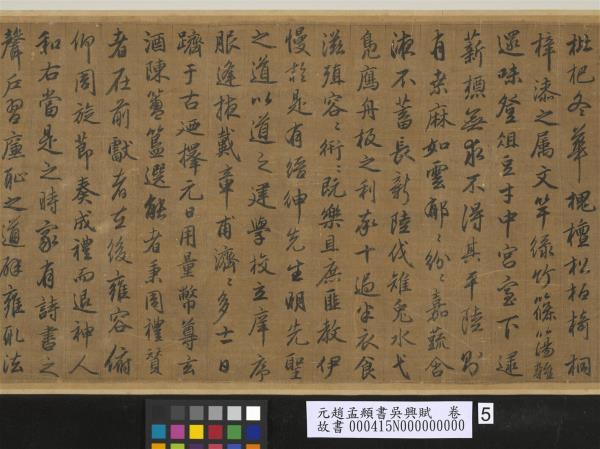 枇杷冬華槐檀松柏椅桐
梓漆之属文竿綠竹篠簜雜
遝味登俎豆才中宮室下逮
薪樵無求不得其平陸則
有桑麻如雲郁〻紛〻嘉蔬含
液不蓄長新陸伐雉兔水弋
鳧鴈舟楫之利率十過半衣食
滋殖容〻衍〻既樂且庶匪教伊
慢於是有搢紳先生明先聖
之道以道之建學校立庠序
服逢掖戴章甫濟〻多士日
躋于古迺擇元日用量幣尊玄
酒陳簠簋選能者秉周禮贊
者在前獻者在後雍容俯
仰周旋節奏成禮而退神人
和右當是之時家有詩書之
聲户習廉恥之道辟雍取法
元趙孟頫書吳興賦 卷
故書000415N000000000
5